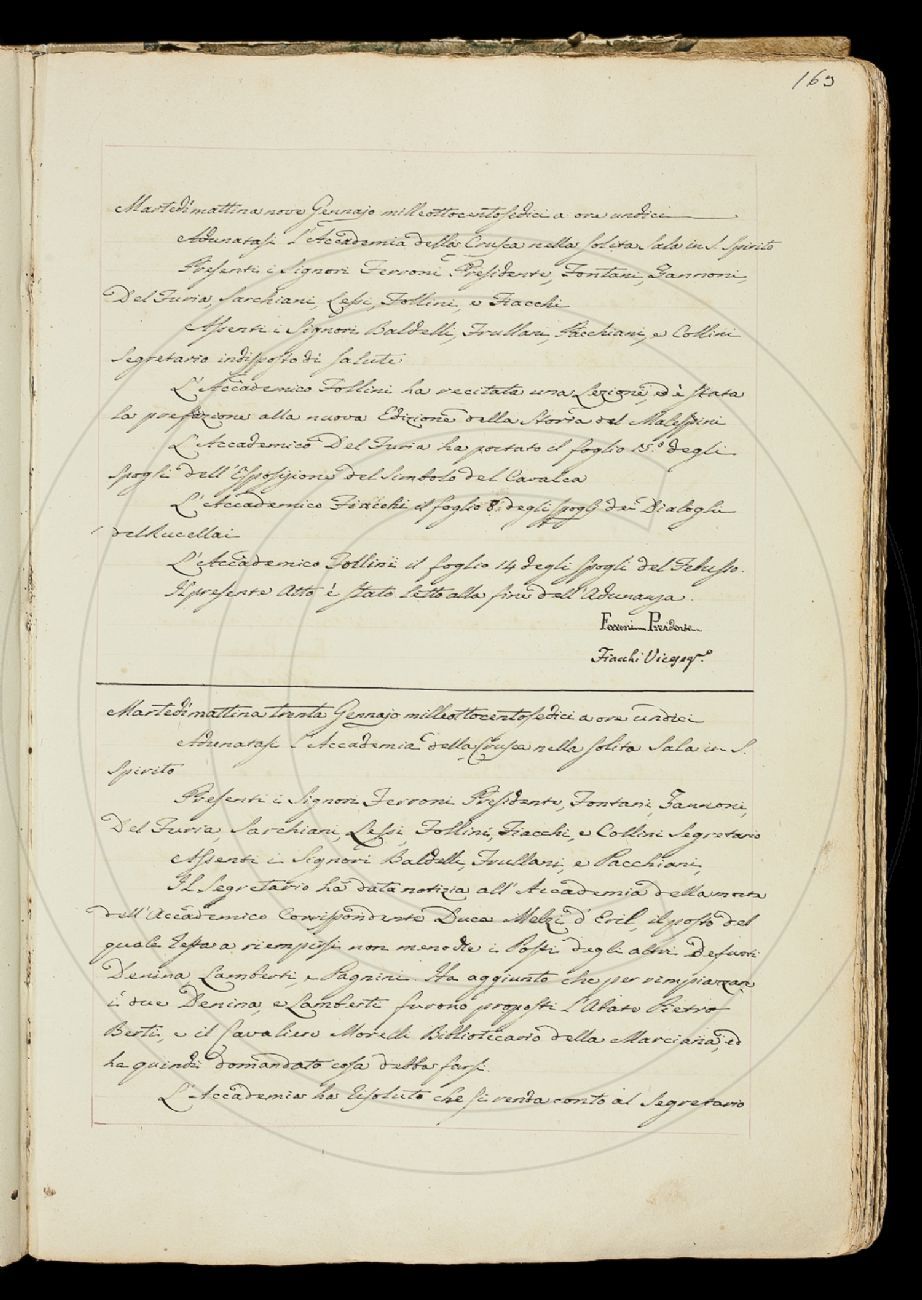 163
Martedì mattina nove Gennajo milleottocentosedici a ore undici
Adunatasi l'Accademia della Crusca nella solita Sala in S. Spirito
Presenti i Signori Ferroni Presidente, Fontani, Zannoni,
Del Furia, Sarchiani, Lessi, Follini, e Fiacchi
Assenti i Signori Baldelli, Frullani, Pacchiani, e Collini
Segretario indisposto di salute
L'Accademico Follini ha recitata una Lezione, ed è stata
la prefazione alla nuova Edizione della Storia del Malespini
L'Accademico Del Furia ha portato il foglio 15.º degli
spogli dell'Esposizione del Simbolo del Cavalca
L'Accademico Fiacchi il foglio 8. degli spogli dei Dialoghi
del Rucellai
L'Accademico Follini il foglio 14 degli spogli del Febusso.
Il presente Atto è stato letto alla fine dell'Adunanza.
Ferroni Presidente
Fiacchi Viceseg.º
Martedì mattina trenta Gennajo milleottocentosedici a ore undici
Adunatasi l'Accademia della Crusca nella solita Sala in S.
Spirito
Presenti i Signori Ferroni Presidente, Fontani, Zannoni,
Del Furia, Sarchiani, Lessi, Follini, Fiacchi, e Collini Segretario
Assenti i Signori Baldelli, Frullani, e Pacchiani,
Il Segretario ha data notizia all'Accademia della morte
dell'Accademico Corrispondente Duca Melzi d'Eril, il posto del
quale resta a riempirsi non meno che i Posti degli altri Defunti
Denina, Lamberti, e Pagnini. Ha aggiunto che per rimpiazzare
i due Denina, e Lamberti furono proposti l'Abate Pietro
Berti, e il Cavaliere Morelli Bibliotecario della Marciana, ed
ha quindi domandato cosa debba farsi.
L'Accademia ha risoluto che si renda conto al Segretario